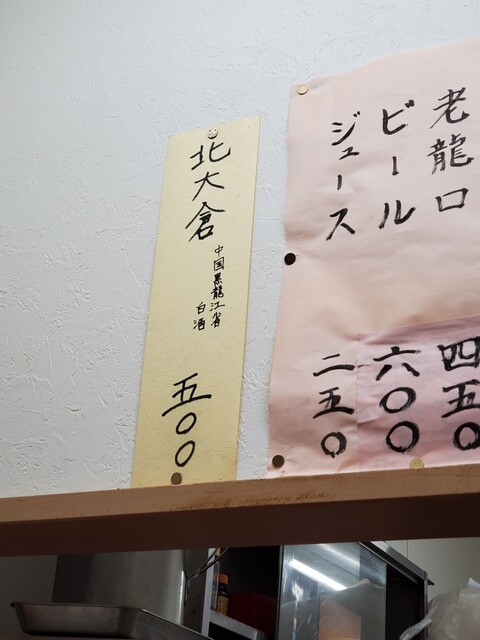 老龍口 四五〇
ビール 六〇〇
ジュース 二五〇
北大倉
中国黒龍江省
白酒
五〇〇